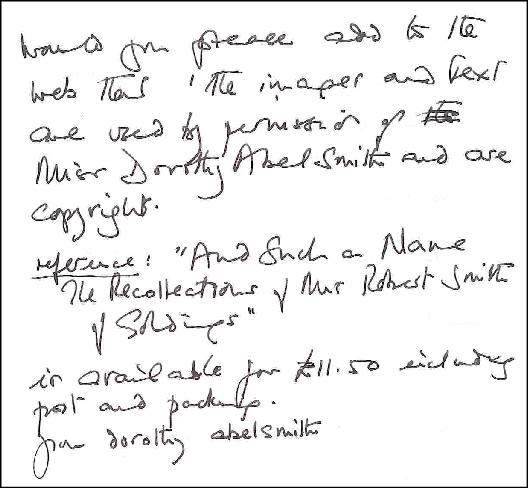 Would you please add to the
web that 'The images and text
are used by permission of the
Miss Dorothy Abel Smith and are
copyright.
reference: "And Such a Name
The Recollections of Mrs Robert Smith
of Goldings"
is available for £11.50 including
post and packing.
from dorothy abelsmith